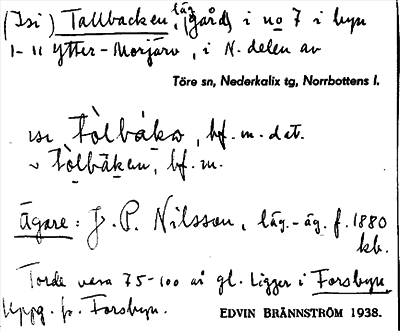 (Isi) Tallbacken, läg. (gård) i no 7 i byn
1-11 Ytter-Morjärv, i N. delen av
Töre sn, Nederkalix tg, Norrbottens l.
isi tòlbáka, bf. m. dat.
v tòlbäken, bf. m.
Ägare: J. P. Nilsson, läg.-äg. f. 1880
kb.
Torde vara 75-100 år gl. Ligger i Forsbyn.
Uppg. fr. Forsbyn.
EDVIN BRÄNNSTRÖM 1938.